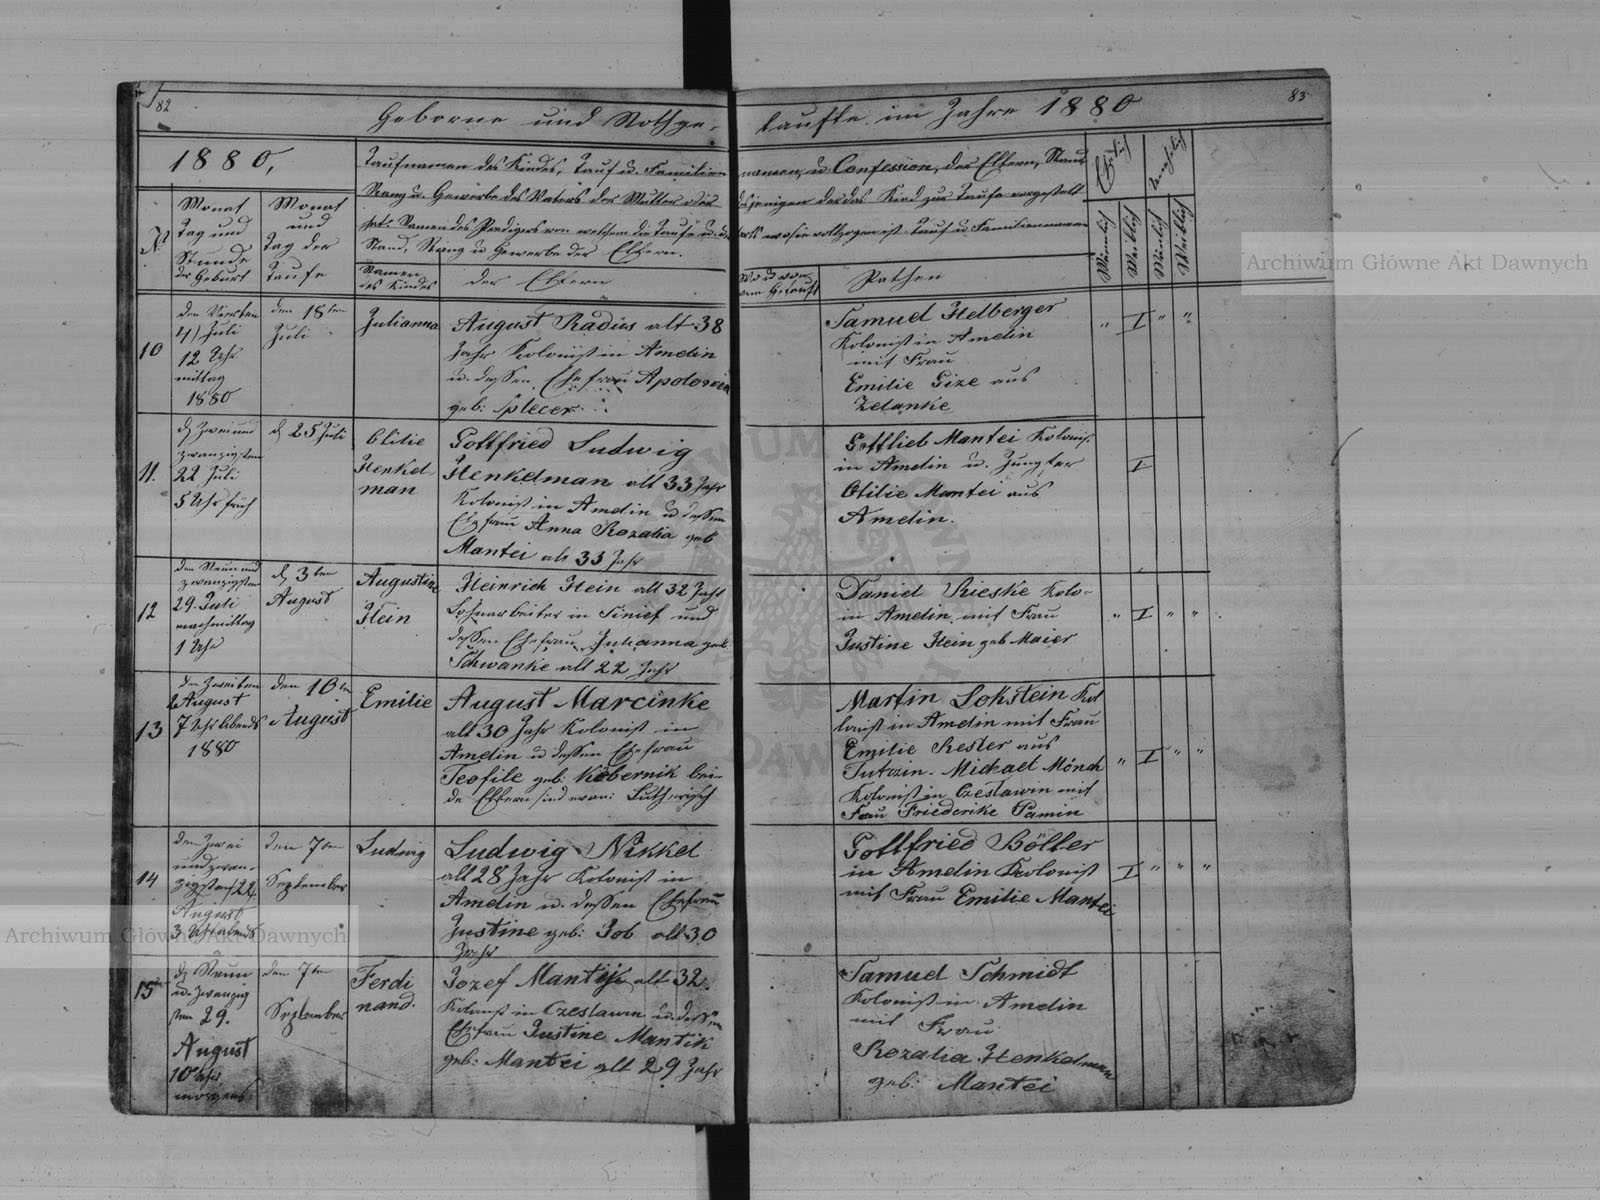 82
Geborne und Nothge-
taufte im Jahre 1880
83
1880,
Taufnamen des Kindes, Tauf u. Familien
namen, u. Confession, der Eltern, Stand
Rang u. Gewerbe des Vaters der Mutter oder
desjenigen der das Kind zur Taufe vorgestelt
hat. Namen des Predigers von welchem die Taufe u.
wo sie vollzogen ist Tauf u Familiennamen
Stand, Rang u Gewerbe der Eltern.
Ehelich
Unehelich
Männlich
Weiblich
Mänlich
Weiblich
№
Monat
Tag und
Stunde
der Geburt
Monat
und
Tag der
Taufe
Namen
des Kindes
der Eltern
Wo u von
wem Getauft
Pathen
10
den Vierten
4) Juli
12 Uhr
mittag
1880
den 18ten
Juli
Julianna
August Radius alt 38
Jahr Kolonist in Amelin
u. dessen Ehefrau Apolonia
geb: Splecer
Samuel Helberger
Kolonist in Amelin
mit Frau
Emilie Gize aus
Zelanke
" I " "
11.
d Zwei und
zwanzigsten
22 Juli
5 Uhr früh
d 25 Juli
Otilie
Henkel
man
Gottfried Ludwig
Henkelman alt 33 Jahr
Kolonist in Amelin u dessen
Ehefrau Anna Rozalia geb
Mantei alt 33 Jahr
Gottlieb Mantei Kolonist
in Amelin u. Jungfer
Otilie Mantei aus
Amelin.
I
12
den Neun und
zwanzigsten
29. Juli
nachmittag
1 Uhr
d 3ten
August
Augustine
Hein
Heinrich Hein alt 32 Jahr
Lohnarbeiter in Sinief und
dessen Ehefrau Julianna geb
Schwanke alt 22 Jahr
Daniel Rieske Kolo-
in Amelin mit Frau
Justine Hein geb Maier
" I " "
13
den Zweiten
2 August
7 Uhr Abends
1880
den 10ten
August
Emilie
August Marcinke
alt 30 Jahr Kolonist in
Amelin u dessen Ehefrau
Teofile geb: Köbernik bei-
de Eltern sind evan: Lutherisch
Martin Lokstein Kol
onist in Amelin mit Frau
Emilie Rester aus
Tutzin. Michael Mönch
Kolonist in Czeslawin mit
Frau Friederike Pamin
" I " "
14
den Zwei
und zwan-
zigsten 22.
August
3 Uhr abends
den 7ten
September
Ludwig
Ludwig Nikkel
alt 28 Jahr Kolonist in
Amelin u. dessen Ehefrau
Justine geb: Job alt 30
Jahr
Gottfried Böller
in Amelin Kolonist
mit Frau Emilie Mantei
I " " "
15
d Neun
u. Zwanzig
sten 29.
August
10 Uhr
morgens
den 7ten
September
Ferdi
nand.
Jozef Mantik alt 32.
Kolonist in Czeslawin u. dessen
Ehefrau Justine Mantik
geb: Mantei alt 29 Jahr
Samuel Schmidt
Kolonist in Amelin
mit Frau
Rozalia Henkelman
geb: Mantei
Archiwum Główne Akt Dawnych
Archiwum Główne Akt Dawnych